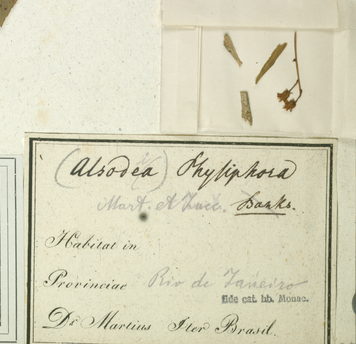 (Alsodea) Physiphora
Mart. & Zucc. Banks.
Habitat in
Provinciae Rio de Janeiro
fide cat. hb. Monac.
Dr Martius Iter Brasil.